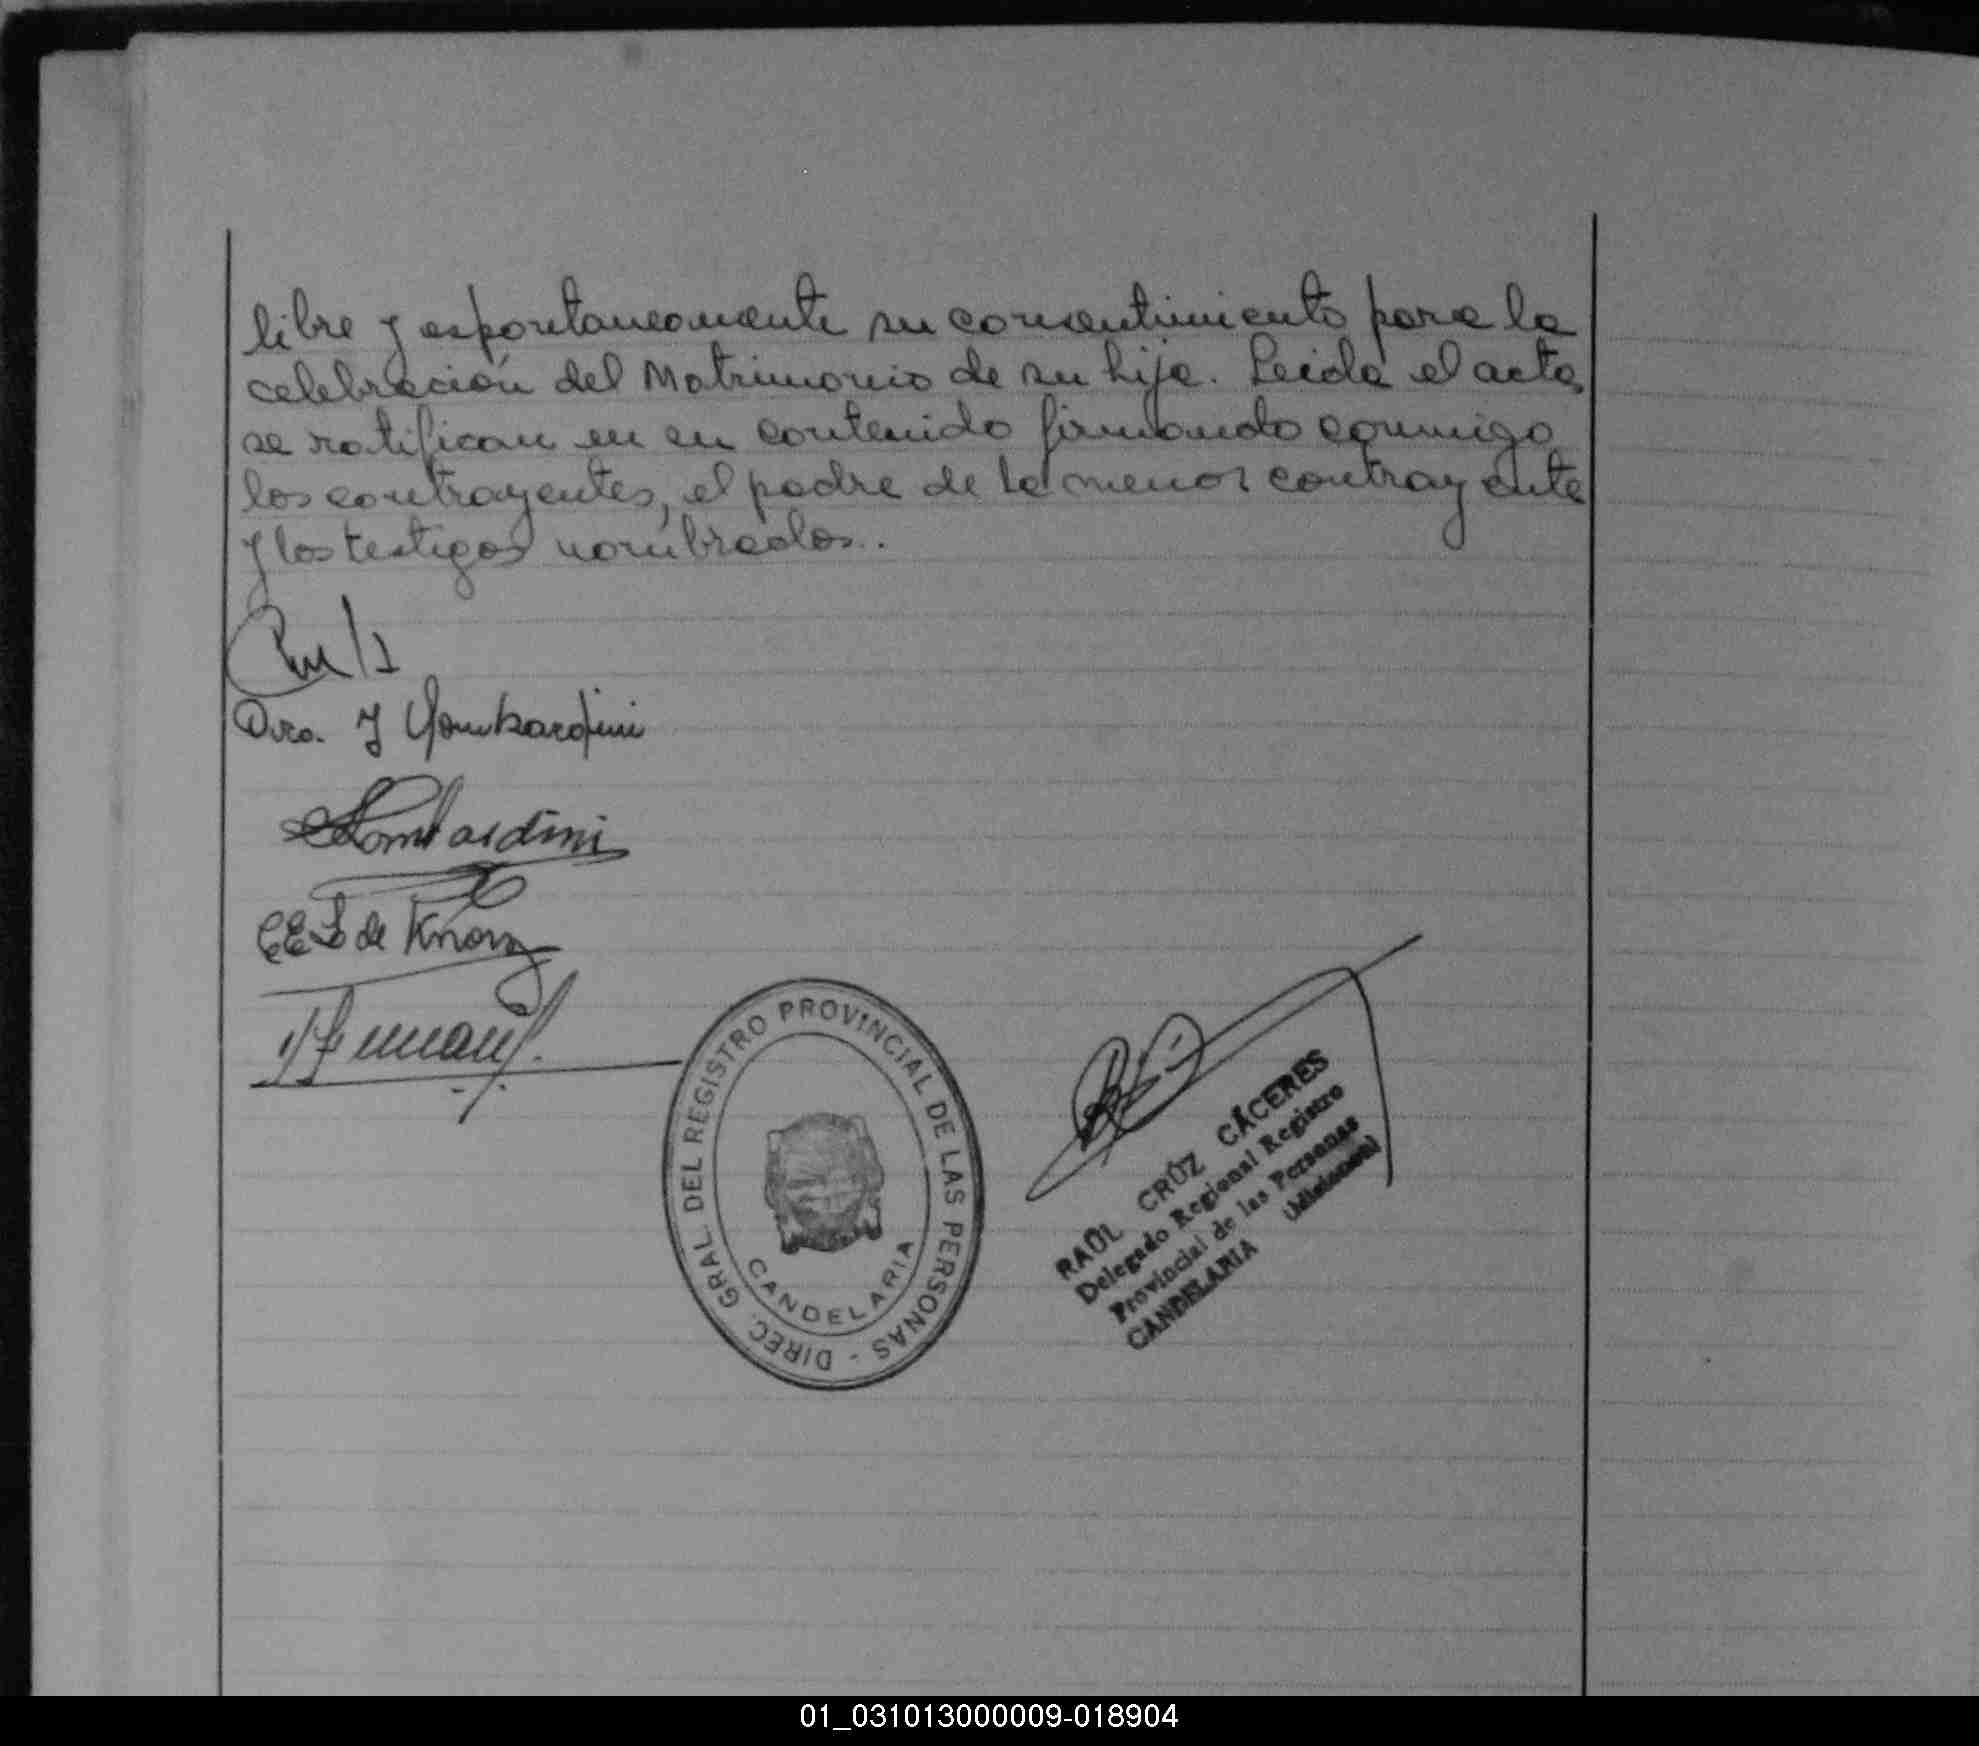 libre y espontaneamente su consentimiento para la
celebración del Matrimonio de su hija. Leida el acta,
se ratifican en su contenido firmando conmigo
los contrayentes, el padre de la menor contrayente
y los testigos nombrados..
Dra. J Lombardini
Lombardini
C E L de Knorz
DIREC. GRAL DEL REGISTRO PROVINCIAL DE LAS PERSONAS -
CANDELARIA
RAÚL CRÚZ CÁCERES
Delegado Regional Registro
Provincial de las Personas
CANDELARIA (Misiones)
01_031013000009-018904